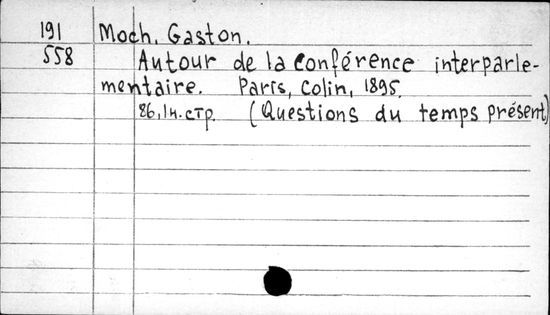 191 Moch, Gaston.
558 Autour de la conférence interparle-
mentaire. Paris, Colin, 1895.
86, 1н. стр. (Questions du temps présent)